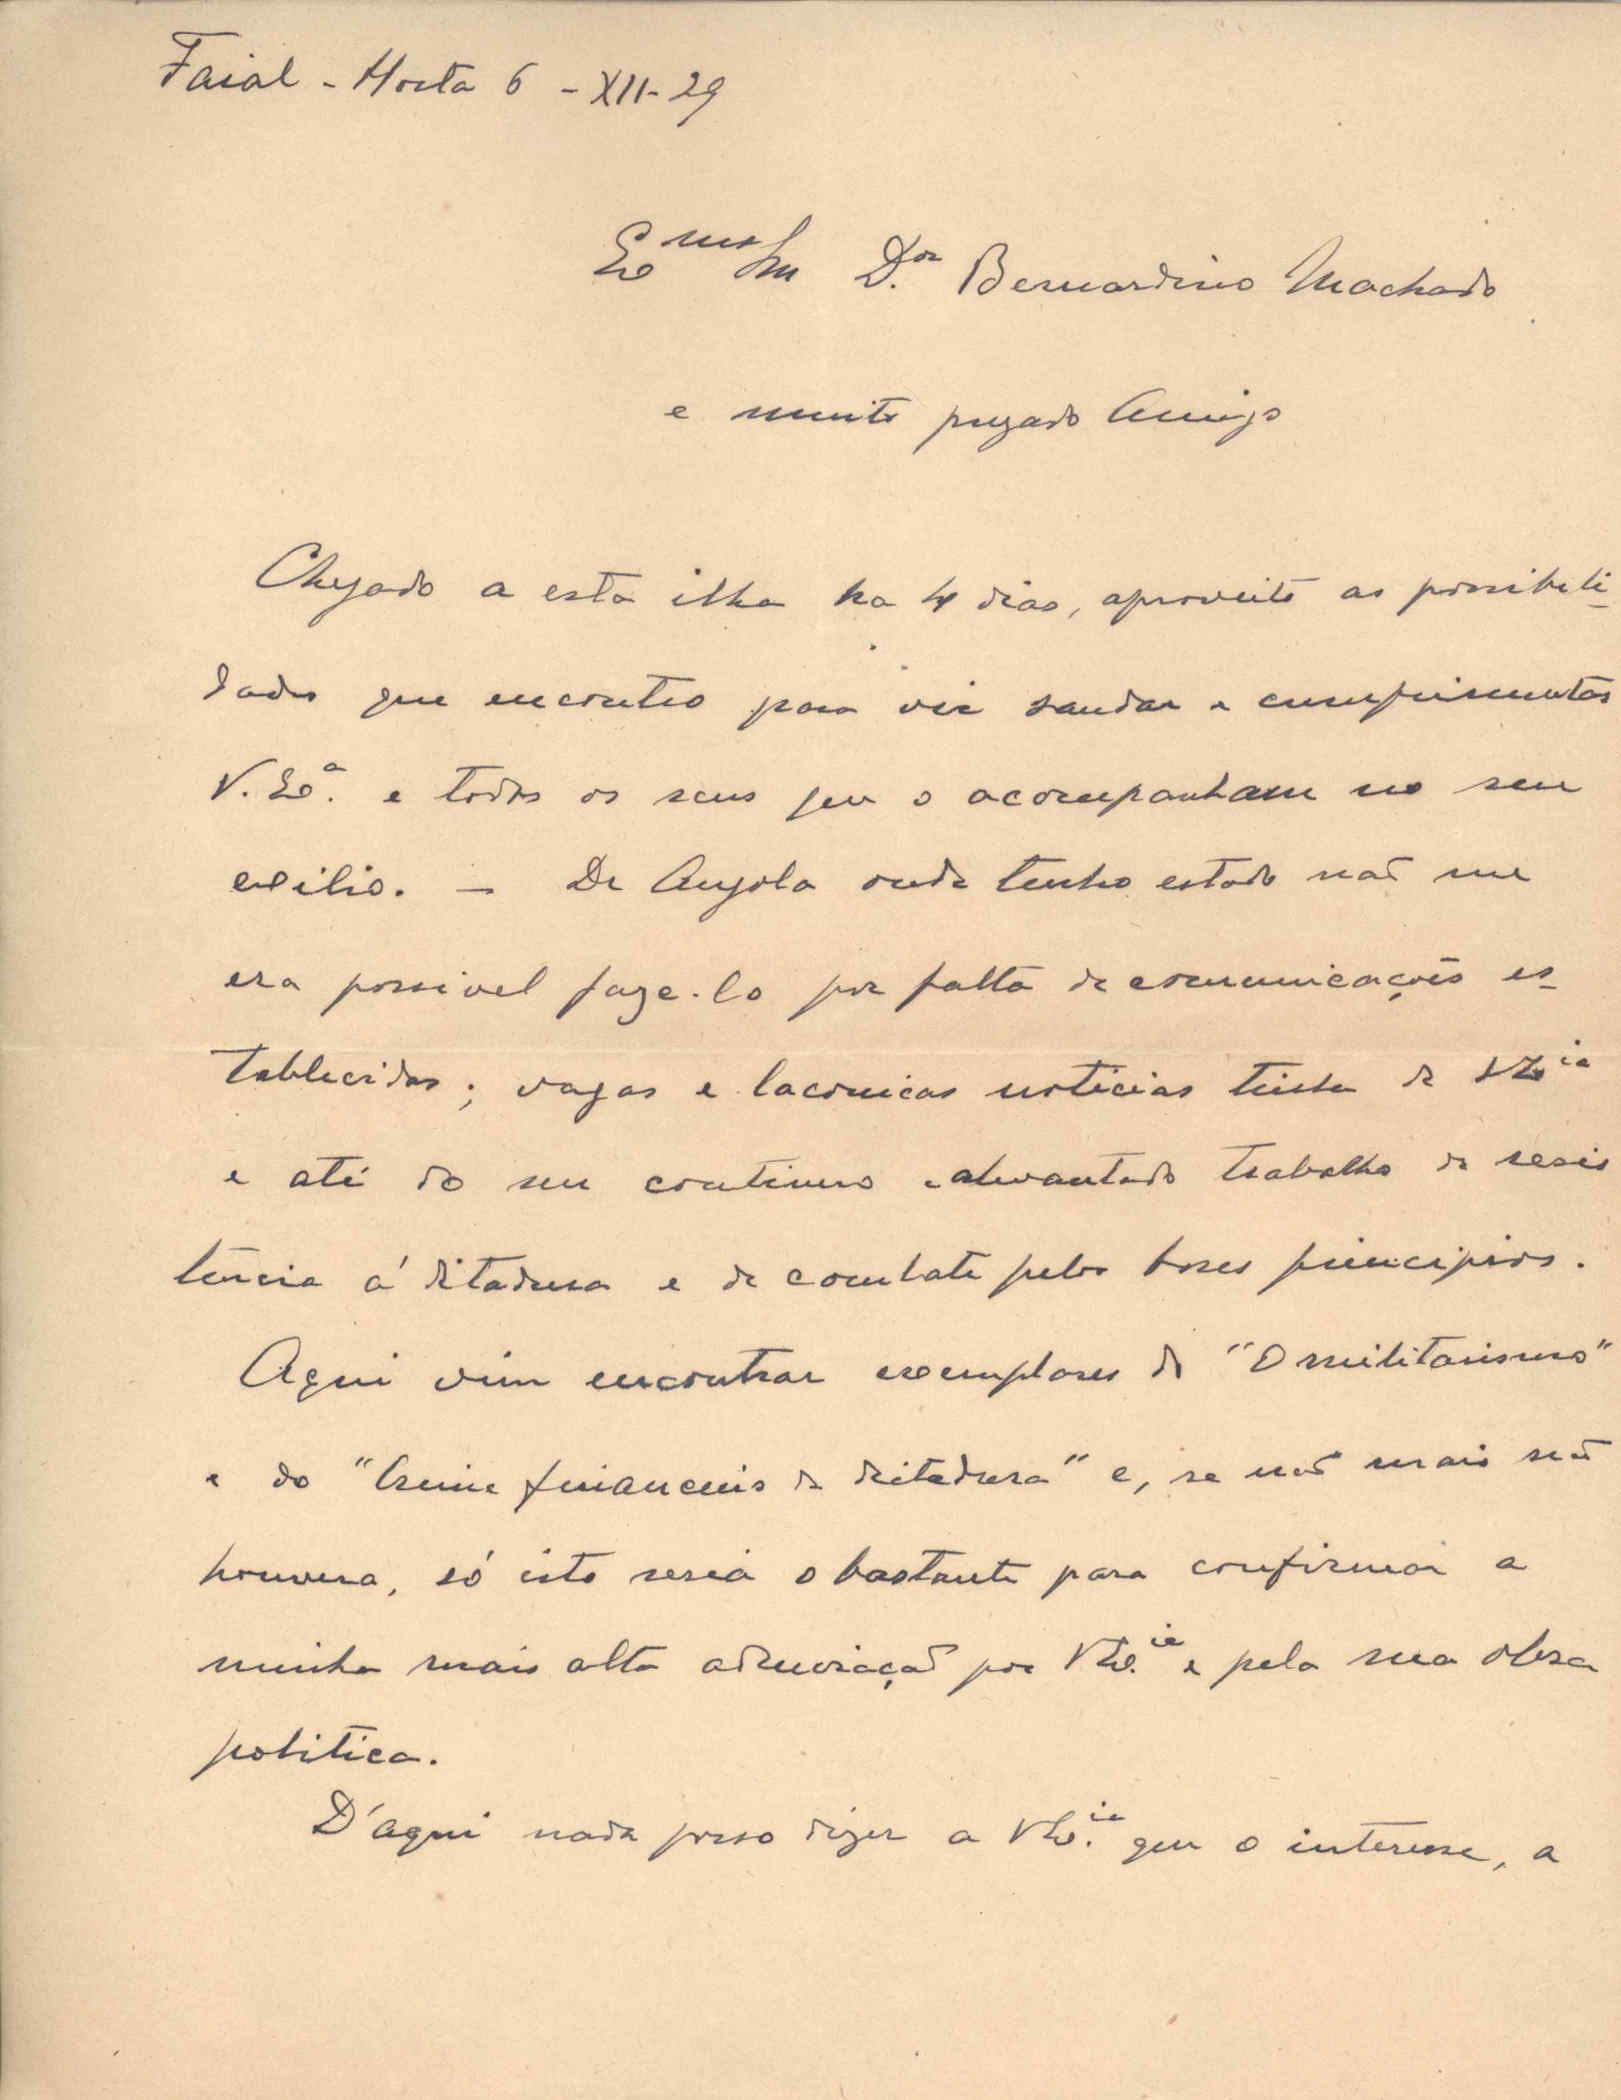 Faial - Horta 6 - XII - 29
Exmo Sr Dor. Bernardino Machado
e muito prezado Amigo
Chegado a esta ilha ha 4 dias, aproveito as possibili-
dades que encontro para vir saudar e cumprimentar
V. Exa. e todos os seus que o acompanham no seu
exilio. - De Angola onde tenho estado não me
era possivel faze-lo por falta de comunicações es-
tablecidas; vagas e laconicas noticias tinha de VExia
e até do seu continuo e alevantado trabalho de resis
tencia á ditadura e de combate pelos bons principios.
Aqui vim encontrar exemplares do "O militarismo"
e do "Crime financeiro da ditadura" e, se não mais não
houvera, só isto seria o bastante para confirmar a
minha mais alta admiração por VEx.ia e pela sua obra
politica.
D'aqui nada posso dizer a VEx.ia que o interesse, a